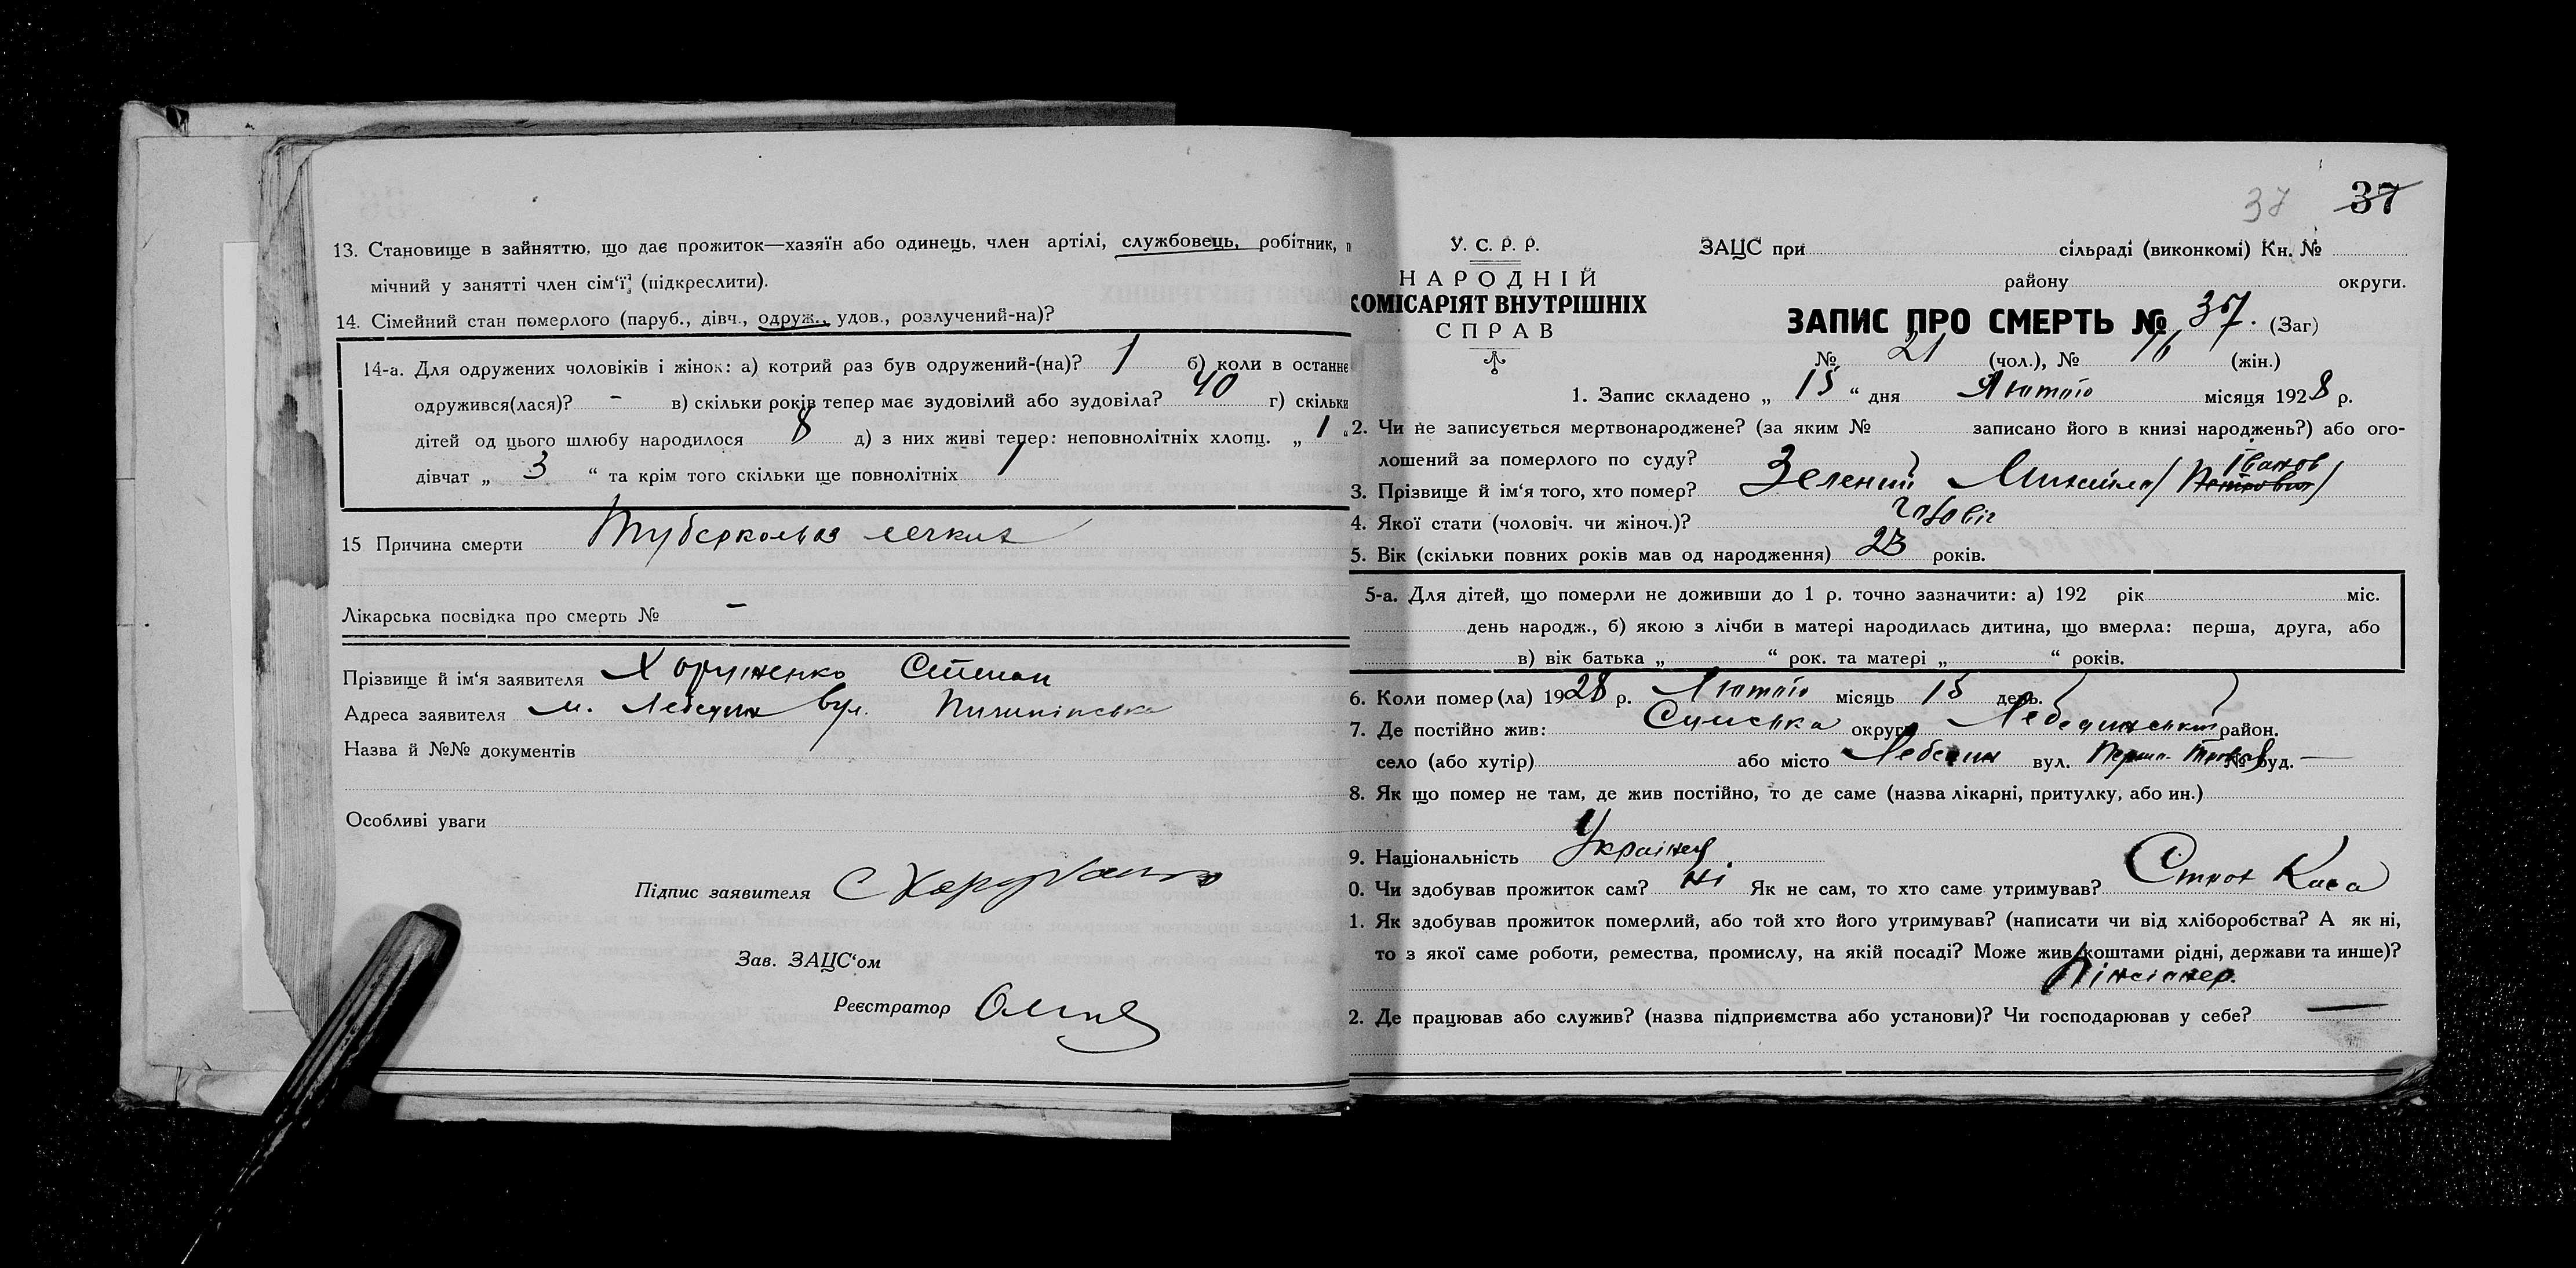 13. Становище в зайняттю, що дає прожиток—хазяїн або одинець, член артілі, службовець, робітник, п
мічний у занятті член сім‘ї (підкреслити).
14. Сімейний стан померлого (паруб., дівч., одруж., удов., розлучений-на)?
14-а. Для одружених чоловіків і жінок: а) котрий раз був одружений-(на)? 1 б) коли в останнє
одружився(лася)? - в) скільки років тепер має зудовілий або зудовіла? 40 г) скільки
дітей од цього шлюбу народилося 8 д) з них живі тепер: неповнолітніх хлопц. „ 1 “
дівчат „ 3 “ та крім того скільки ще повнолітніх 1
15 Причина смерти Туберкольоз легких
Лікарська посвідка про смерть № -
Прізвище й ім‘я заявителя Хоруженко Степан
Адреса заявителя м. Лебедин вул.
Назва й №№ документів
Особливі уваги
Підпис заявителя С
Зав. ЗАЦС‘ом
Реєстратор
37 37
У. С. Р. Р.
НАРОДНІЙ
КОМІСАРІЯТ ВНУТРІШНІХ
СПРАВ
ЗАЦС при сільраді (виконкомі) Кн. №
району округи.
ЗАПИС ПРО СМЕРТЬ № 37. (Заг)
№ 21 (чол.), № 16 (жін.)
1. Запис складено „ 15 “ дня Лютого місяця 1928 р.
2. Чи не записується мертвонароджене? (за яким № записано його в книзі народжень?) або ого-
лошений за померлого по суду?
Іванов
3. Прізвище й ім‘я того, хто помер? Зелений Михайло (Петрович)
4. Якої стати (чоловіч. чи жіноч.)? чоловіч
5. Вік (скільки повних років мав од народження) 23 років.
5-а. Для дітей, що померли не доживши до 1 р. точно зазначити: а) 192 рік міс.
день народж., б) якою з лічби в матері народилась дитина, що вмерла: перша, друга, або
в) вік батька „ “ рок. та матері „ “ років.
6. Коли помер(ла) 1928 р. Лютого місяць 15 день.
7. Де постійно жив: Сумська округ Лебединський район.
село (або хутір) або місто Лебедин вул. Перша № буд. —
8. Як що помер не там, де жив постійно, то де саме (назва лікарні, притулку, або ин.)
9. Національність Українец
0. Чи здобував прожиток сам? Ні Як не сам, то хто саме утримував? Страх Каса
1. Як здобував прожиток померлий, або той хто його утримував? (написати чи від хліборобства? А як ні,
то з якої саме роботи, ремества, промислу, на якій посаді? Може жив коштами рідні, держави та инше)?
Пінсіонер.
2. Де працював або служив? (назва підприємства або установи)? Чи господарював у себе? —